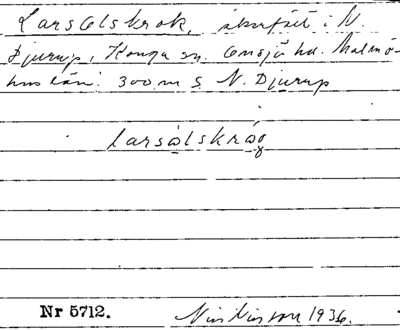 Lars Ols krok, åkerfält i N.
Djurup, Konga sn. Onsjö hd. Malmö-
hus län. 300 m S N. Djurup
larsòlskråg
Nr 5712. Nils Nilsson 1936.